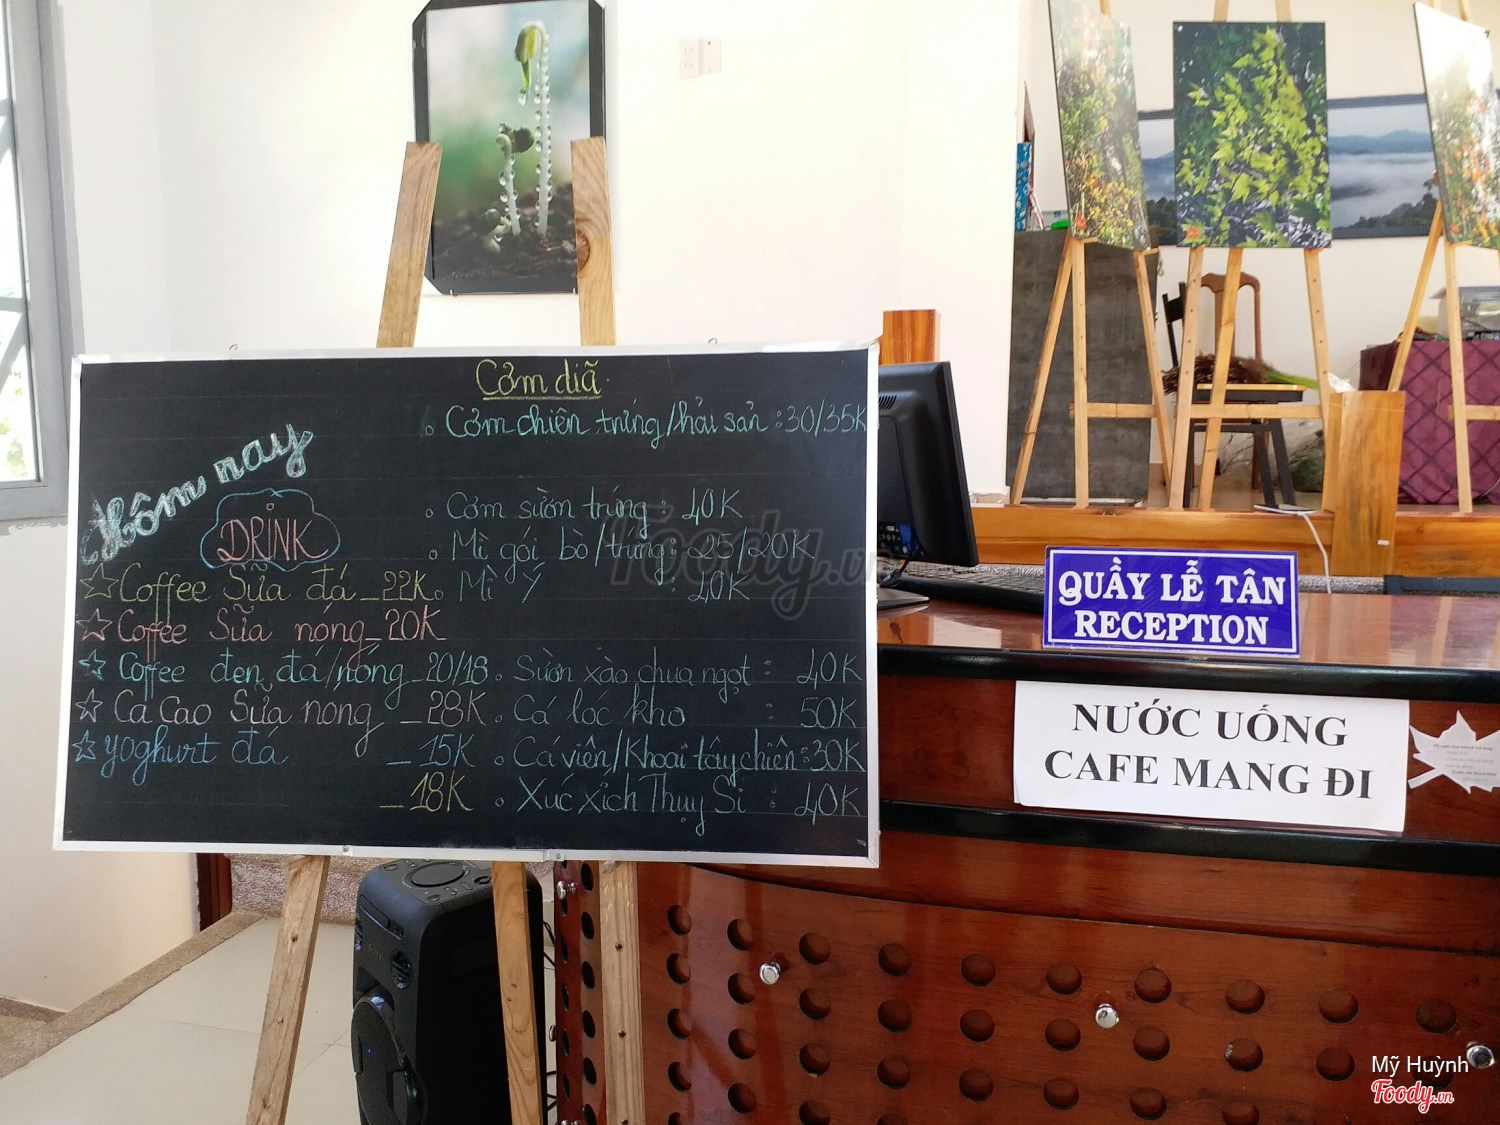 Cơm diã
Hôm nay
DRINK
Cơm chiên trứng/hải sản : 30/35K
Cơm sườn trứng : 40K
Mì gói bò/trứng : 25/20K
Mì Ý : 40K
Coffee Sữa đá _ 22K
Coffee Sữa nóng _ 20K
Coffee đen đá/nóng _ 20/18
Ca Cao Sữa nong _ 28K
yoghurt đá _ 15K
_ 18K
Sườn xào chua ngọt : 40K
Cá lóc kho : 50K
Cá viên/Khoai tây chiên : 30K
Xúc xích Thụy Sĩ : 40K
QUẦY LỄ TÂN
RECEPTION
NƯỚC UỐNG
CAFE MANG ĐI
Foody.vn
Mỹ Huỳnh
Foody.vn